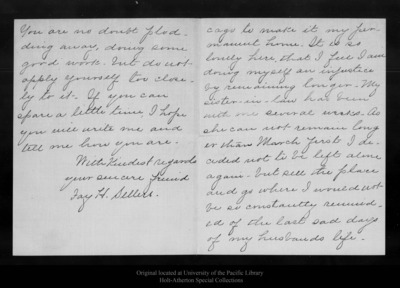 You are no doubt plod-
ding away, doing some
good work. But do not
apply yourself too close-
ly to it. If you can
spare a little time I hope
you will write me and
tell me how you are.
With kindest regards
your sincere friend
Fay H. Sellers.
cago to make it my per-
manent home. It is so
lonely here, that I feel I am
doing myself an injustice
by remaining longer. My
sister-in-law has been
with me several weeks. As
she can not remain long
er than March first I de-
cided not to be left alone
again. but sell the place
and go where I would not
be so constantly remind-
ed of the last sad days
of my husbands life.
Original located at University of the Pacific Library
Holt-Atherton Special Collections